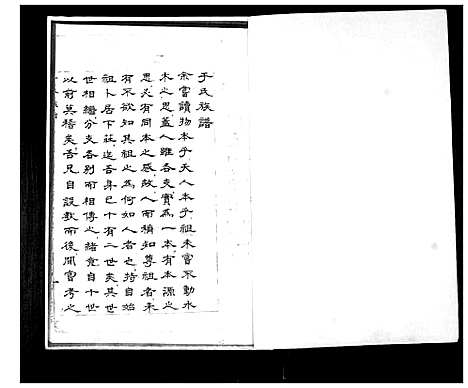 于氏族譜
余嘗讀物本乎天人本乎祖未嘗不動水
木之思蓋人雖各支實為一本有本源之
思必有同本之感故人而稍知尊祖者未
有不欲知其祖之為何如人者也特自始
祖卜居下莊迄吾身已十有二世矣其世
世相繼分支各別而相傳之緒竟自十世
以前莫稽矣吾兄自設歎而後開嘗考之